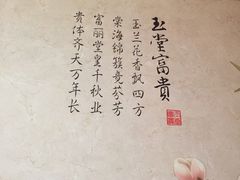 玉堂富貴
玉兰花香飘四方
棠海锦簇竞芬芳
富丽堂皇千秋业
贵体齐天万年长